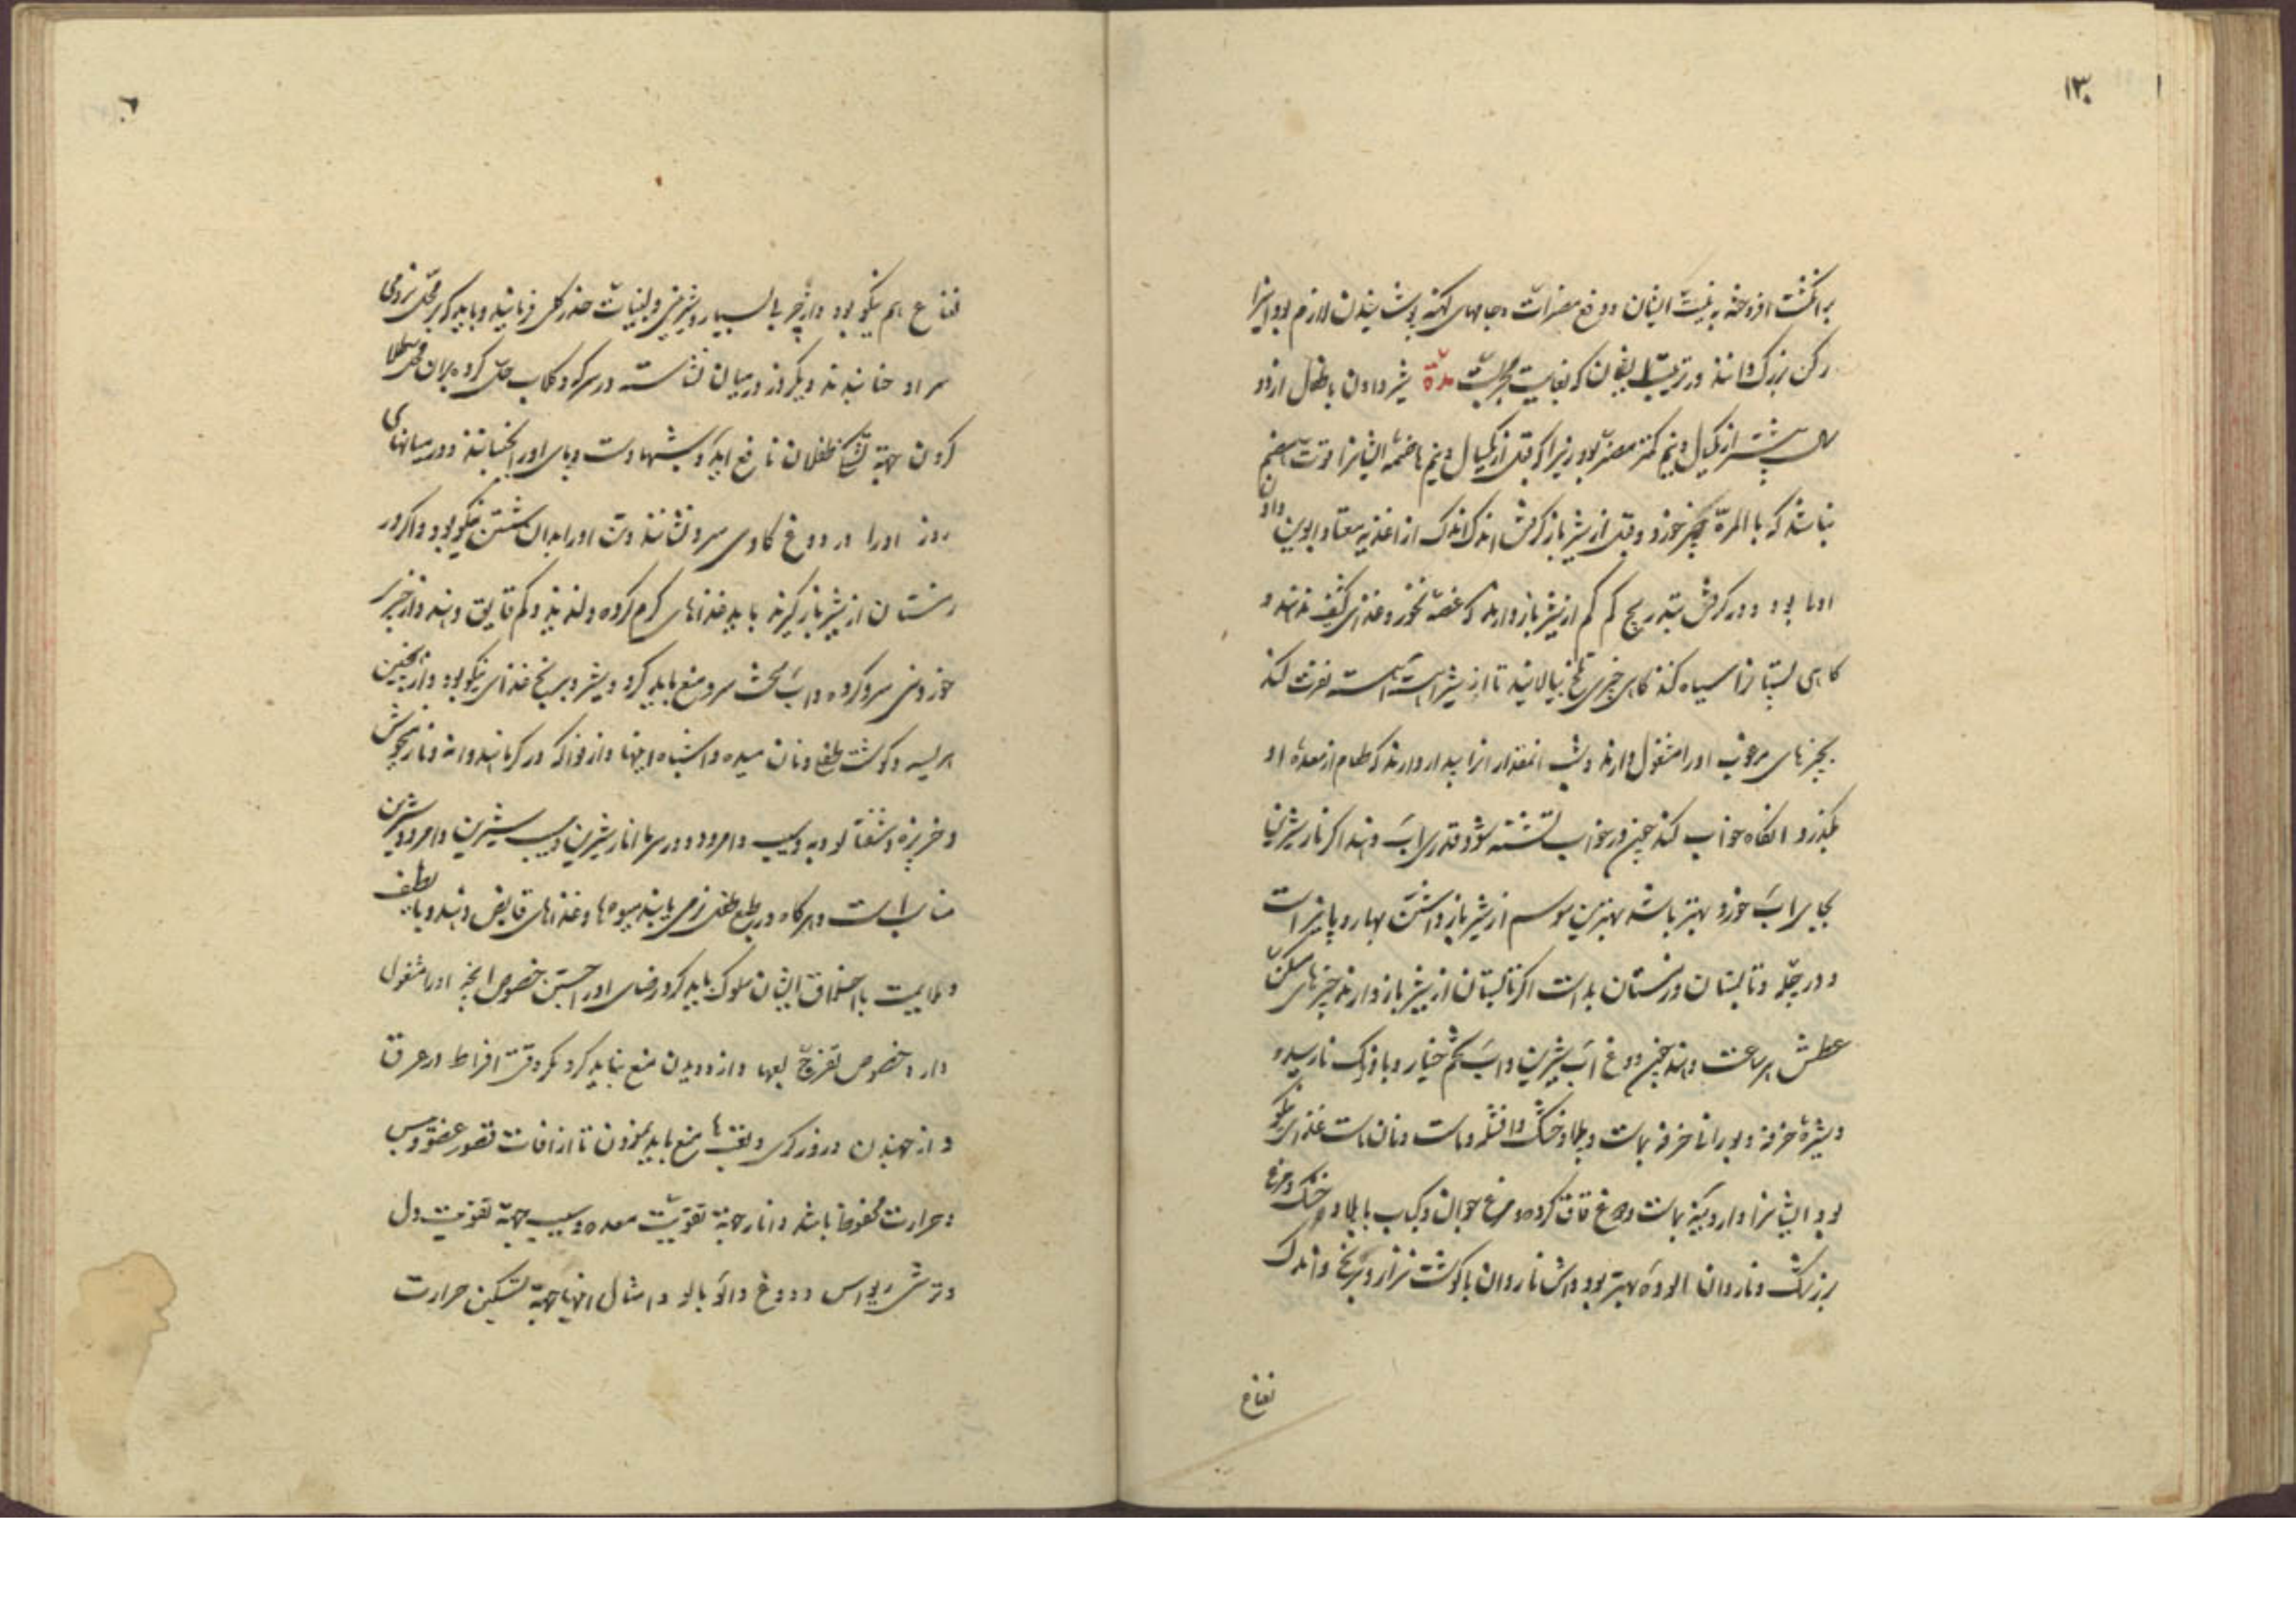 ۱۳۰
برانگشت افروخته به نیت ایشان دفع مضرات و جامهای کهنه پوشانیدن لازم بود و اینرا
رکن بزرگ دانند در تربیت ایشان که بغایت مجربست مدّة شیر دادن باطفال از دو
سال بیشتر از یکسال و نیم کمتر مضر بود زیرا که قبل از یکسال و نیم هاضمه ایشانرا قوت هضم
نباشد که بالمرة چیز خورد و قبل از شیر باز گرفتن اندک اندک از اغذیه معتاد ابوین دادن
اولی بود و در گرفتن بتدریج کم کم از شیر باز دارند که غصه نخورد و غذای کثیف ندهند و
گاهی پستانرا سیاه کنند گاهی چیزی تلخ بیالایند تا از شیر آهسته آهسته نفرت کند
بچیزهای مرغوب او را مشغول دارند و شب آنمقدار او را بیدار دارند که طعام از معدهٔ او
بگذرد آنگاه خواب کند چون در خواب تشنه شود قدری آب دهند اگر انار شیرین
بجای آب خورد بهتر باشد بهترین موسم از شیر باز داشتن بهار و پائیز است
و در چله تابستان و زمستان بد است اگر تابستان از شیر باز دارند چیزهای مسکن
عطش هر ساعت دهند چون دوغ آب شیرین و آب تخم خیار و بادرنک نارسیده
و شیرهٔ خرفه و بورانی خرفه بماست و پلاو خشک و افشره و ماست و نان ماست غذای نیکو
بود ایشانرا و اردینه بماست و دوغ قاق کرده و مرغ جوان و کباب با پلاو خشک و مرغ
بزرشک و ناردان آلوده بهتر بود و آش ناردان با گوشت نزار و برنج و اندک
نعناع
نعناع هم نیکو بود و از چربی بسیار و شیرینی و لبنیات حذر کلی فرمایند و باید که بر محل نرمی
سر او حنا بندند و یکروز در میان نشاسته در سرکه و گلاب حل کرده بر آن محل طلا
کردن جهة تشنگی طفلان نافع آید و شبها دست و پای او را بحنا بندند و در میانهای
روز او را در دوغ گاوی سرد نشانند و تن او را بدان شستن نیکو بود و اگر در
زمستان از شیر باز گیرند باید غذاهای گرم کرده و لذیذ و کم قایق دهند و از چیز
خوردنی سرد کرده و آب سخت سرد منع باید کرد و شیر و برنج غذای نیکو بود و از همچنین
هریسه و گوشت قلیه و نان میده و اشباه اینها و از فواکه در گرما هندوانه و نار میخوش
و خربزه و شفتالو و به و سیب و امرود و در سرما انار شیرین و سیب شیرین و امرود شیرین
مناسب است و هرگاه در طبع طفل نرمی یابند میوه‌ها و غذاهای قابض دهند و با لطف
و ملایمت با اخلاق ایشان سلوک باید کرد و رضای او را جستن خصوص آنچه او را مشغول
دارد خصوص تفرج لعبها و از دویدن منع نباید کرد مگر وقت افراط در عرق
و از جهیدن در روز گرمی و تعبها منع باید نمودن تا از آفات قصور عضو و یبس
و حرارت محفوظ باشد و انار جهة تقویت معده و سیب جهة تقویت دل
و ترشی ریواس و دوغ و آلو بالو و امثال اینها جهة تسکین حرارت